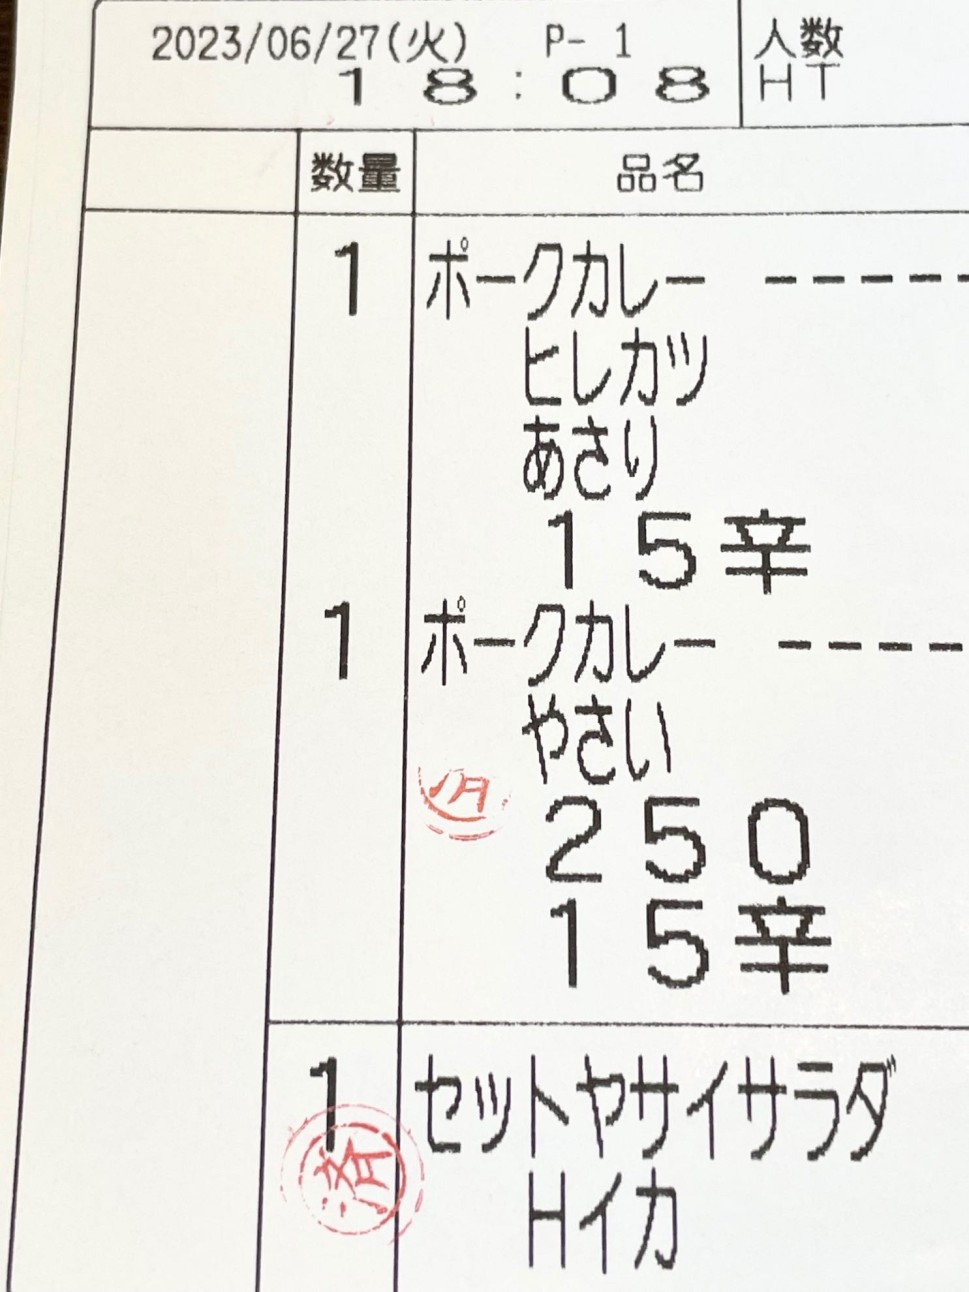 2023/06/27(火) P- 1 人数
18:08 HT
数量 品名
1 ポークカレー -----
ヒレカツ
あさり
15辛
1 ポークカレー ----
やさい
250
15辛
1 セットやサイサラダ
済
Hイカ